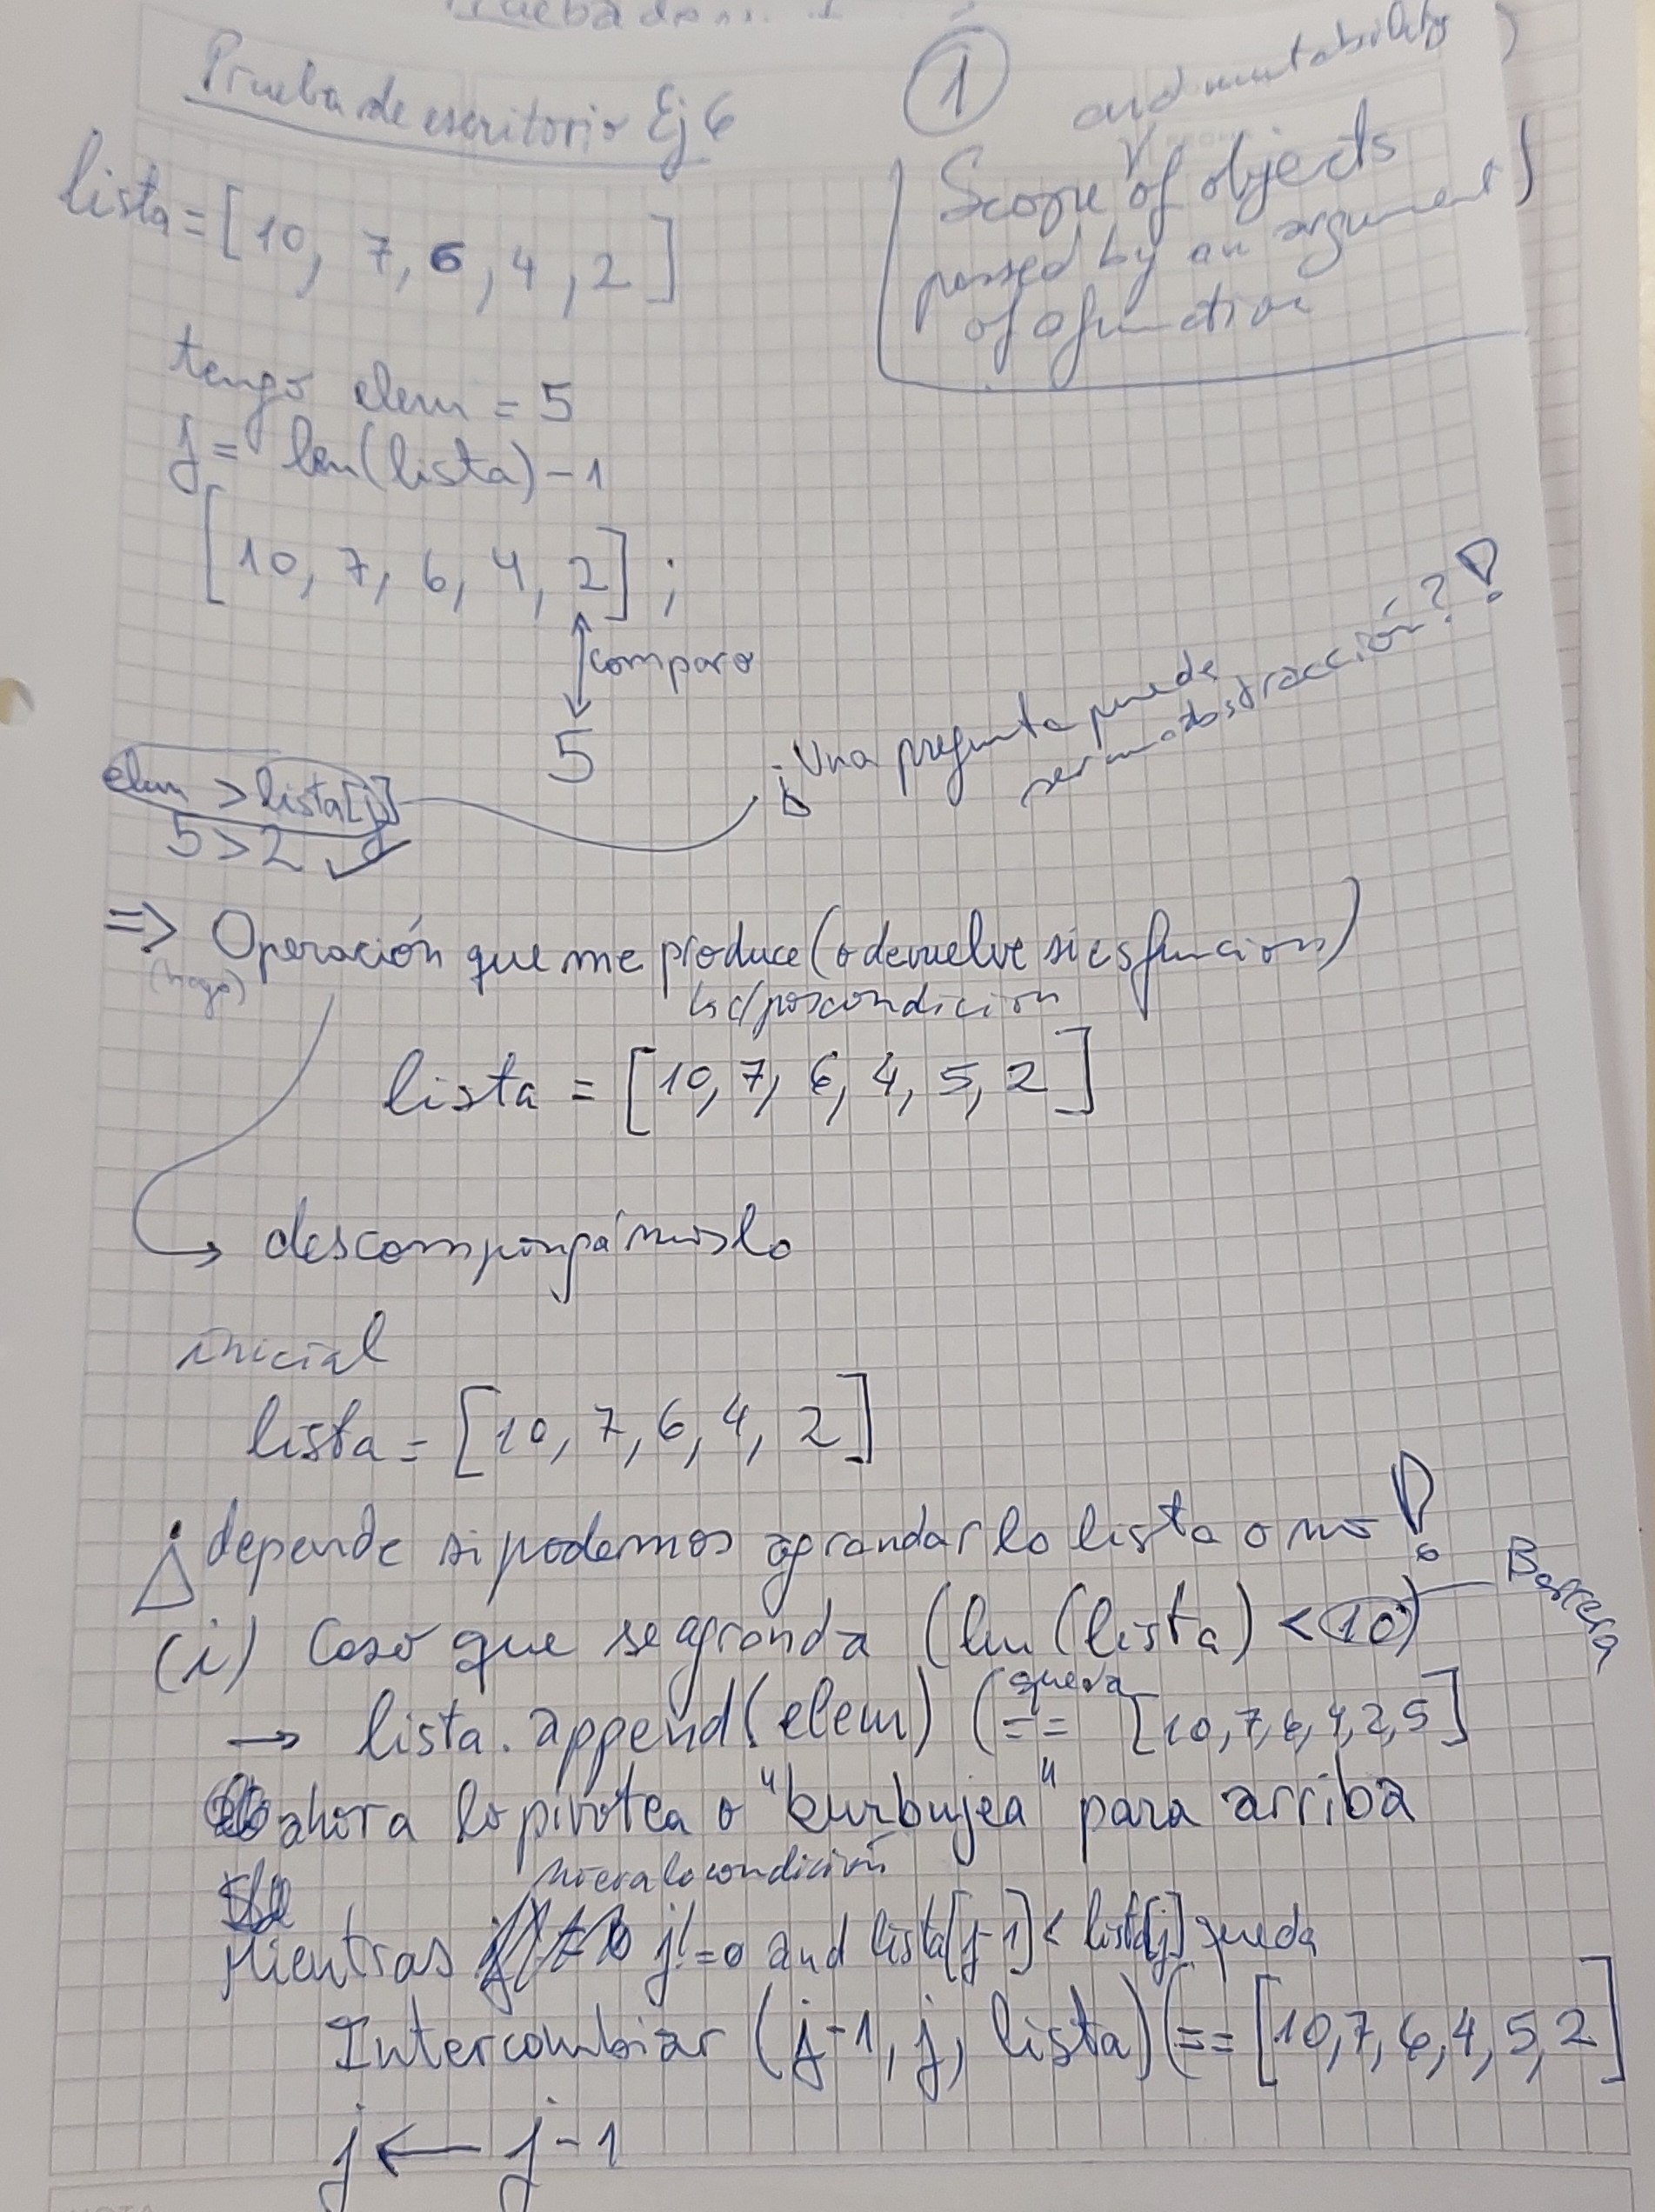 Prueba de escritorio Ej 6
1
and mutability
Scope of objects
passed by an argument
of a function
lista = [10, 7, 6, 4, 2]
tengo elem = 5
j = len(lista) - 1
[10, 7, 6, 4, 2];
comparo
5
elem > lista[j]
5 > 2 ✓
¿Una pregunta puede
ser una abstracción?!
=> Operación que me produce (o devuelve si es función)
(hago)
c/poscondición
lista = [10, 7, 6, 4, 5, 2]
→ descompongámoslo
inicial
lista = [10, 7, 6, 4, 2]
¡depende si podemos agrandar la lista o no!
(i) Caso que se agranda (len(lista) < 10)
Barrera
→ lista.append(elem) (== [10, 7, 6, 4, 2, 5]
queda
ahora lo pivotea o "burbujea" para arriba
condición
Mientras j != 0 and lista[j-1] < lista[j] queda
Intercambiar (j-1, j, lista) (== [10, 7, 6, 4, 5, 2]
j ← j-1